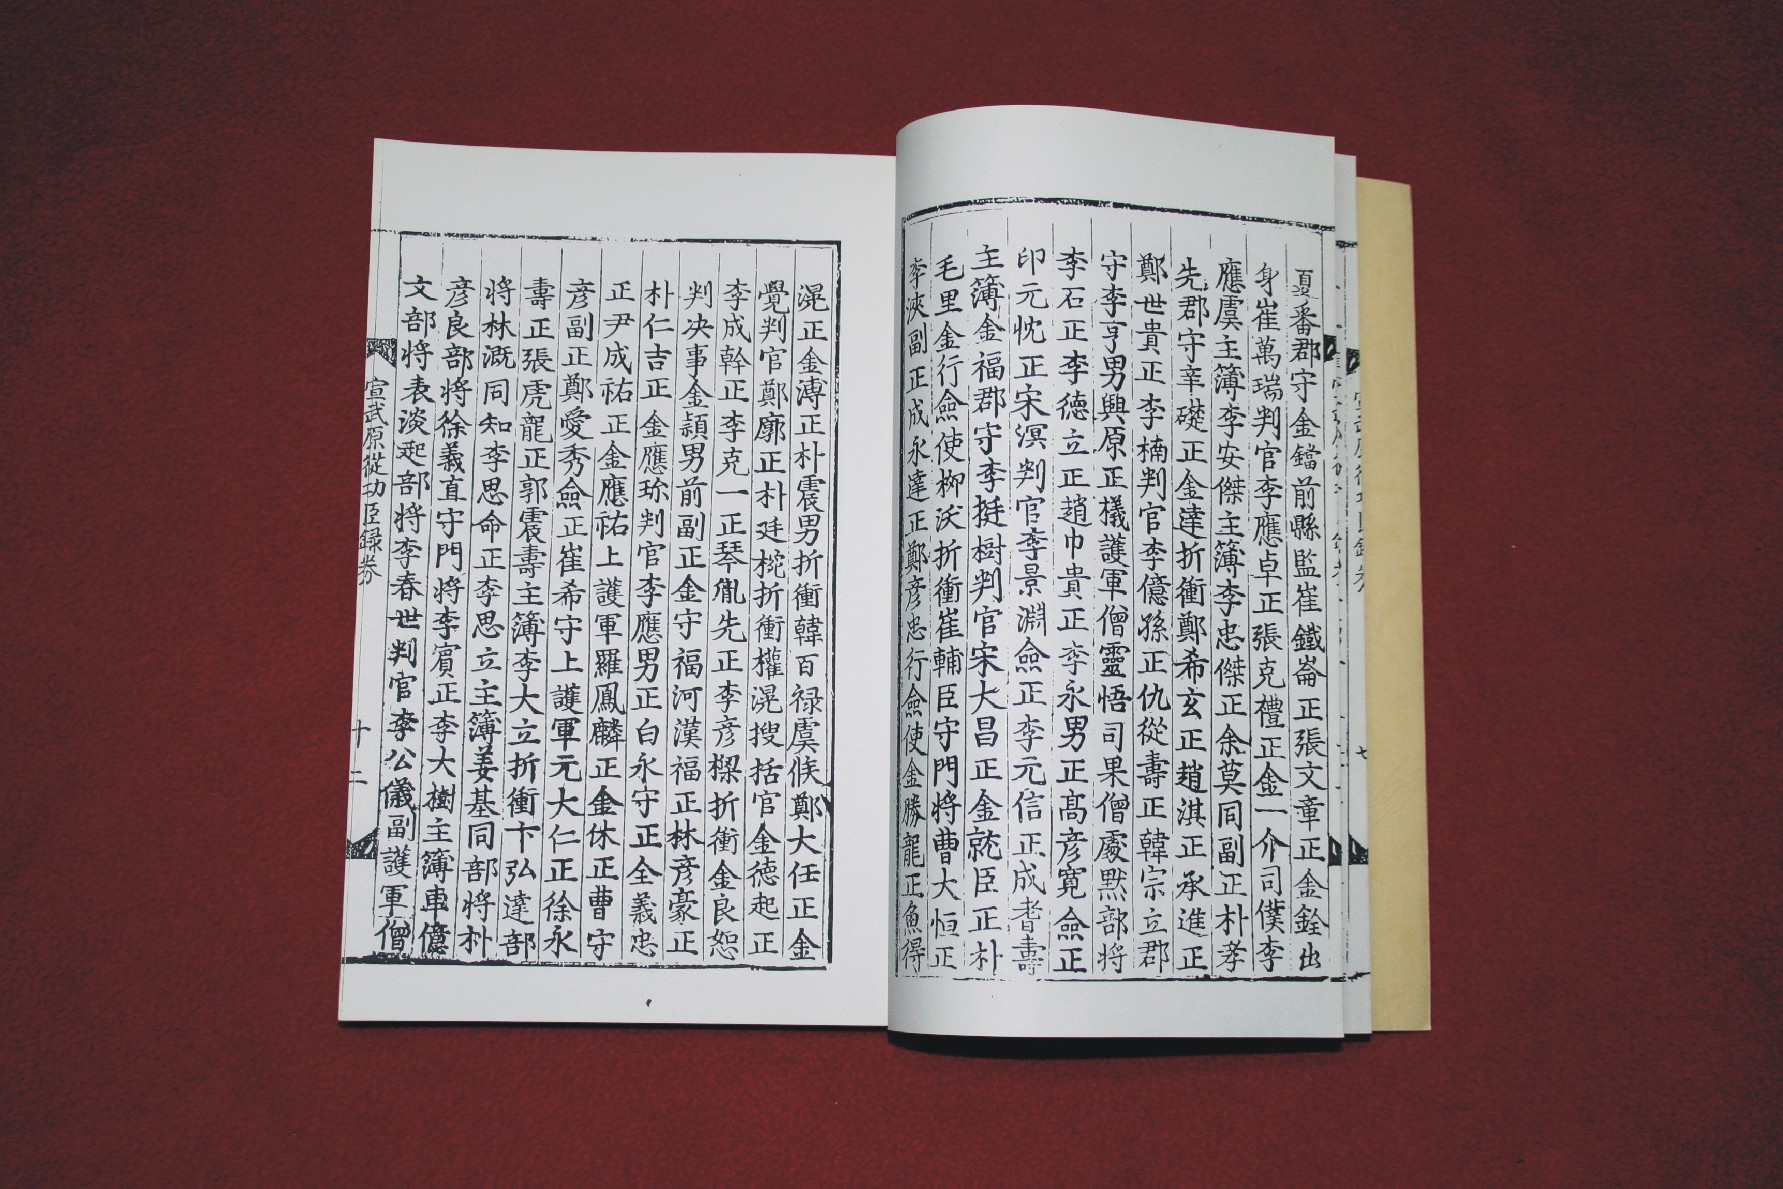 夏番郡守金鐺前縣監崔鐵崙正張文章正金銓出
身崔萬瑞判官李應卓正張克禮正金一介司僕李
應虞主簿李安傑主簿李忠傑正余莫同副正朴孝
先郡守辛礎正金達折衝鄭希玄正趙淇正承進正
鄭世貴正李楠判官李億孫正仇從壽正韓宗立郡
守李亨男興原正檥護軍僧靈悟司果僧處默部將
李石正李德立正趙巾貴正李永男正高彦寬僉正
印元忱正宋溟判官李景淵僉正李元信正成耆壽
主簿金福郡守李挺樹判官宋大昌正金就臣正朴
毛里金行僉使柳沃折衝崔輔臣守門將曹大恒正
李浹副正成永達正鄭彦忠行僉使金勝龍正魚得
滉正金溥正朴震男折衝韓百祿虞候鄭大任正金
覺判官鄭廓正朴廷椀折衝權滉搜括官金德起正
李成幹正李克一正琴胤先正李彦樑折衝金良恕
判决事金頴男前副正金守福河漢福正林彦豪正
朴仁吉正金應珎判官李應男正白永守正全義忠
正尹成祐正金應祐上護軍羅鳳麟正金休正曹守
彦副正鄭愛秀僉正崔希守上護軍元大仁正徐永
壽正張虎龍正郭震壽主簿李大立折衝卞弘達部
將林漑同知李思命正李思立主簿姜基同部將朴
彦良部將徐義直守門將李賓正李大樹主簿車億
文部將表淡起部將李春世判官李公儀副護軍僧
宣武原從功臣録券
十二